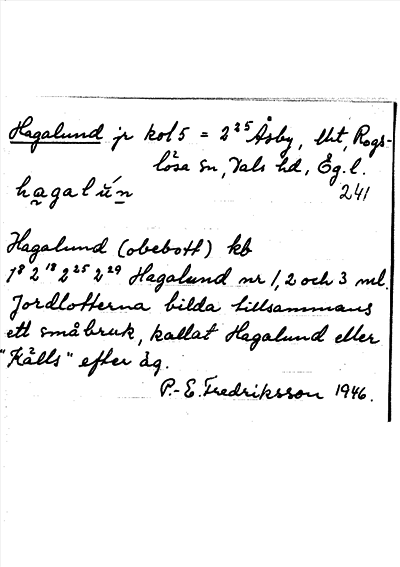 Hagalund jr kol 5 = 2²⁵ Åsby, lht, Rogs-
lösa sn, Dals hd, Ög.l.
hagalún 241
Hagalund (obebott) kb
1⁸ 2¹⁸ 2²⁵ 2²⁹ Hagalund nr 1, 2 och 3 ml.
Jordlotterna bilda tillsammans
ett småbruk, kallat Hagalund eller
"Kålls" efter äg.
P.-E. Fredriksson 1946.